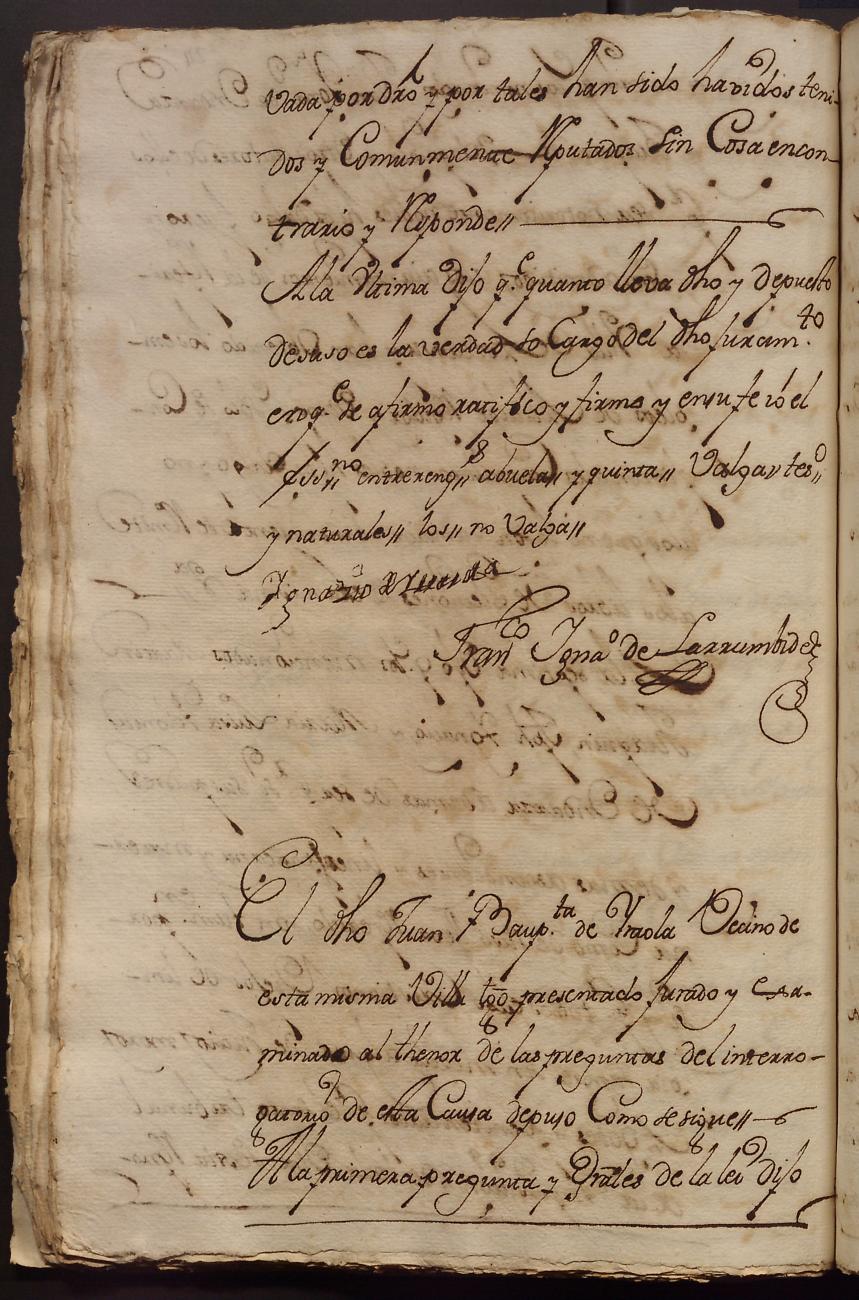 vada por dro y por tales han sido havidos teni-
dos y Comunmente Rputados sin Cosa encon-
trario y Rsponde//
Ala Vltima dijo q.e quanto lleva dho y depuesto
desuso es la verdad so Cargo del dho juram.to
enq.e se afirmo ratifico y firmo y ensufe io el
ess.no entrereng.s abuela// y quinta// Valga// tes.o//
y naturales// los// no Valga//
Ignazio de
Fran.co Igna.o de Larrumbide
El dho Juan Baup.ta de Yraola Vecino de
esta misma Villa tgo presentado jurado y exa-
minado al thenor de las preguntas del interro-
gatorio de esta Causa depuso Como se sigue//
Ala primera pregunta y Grales de la lei dijo